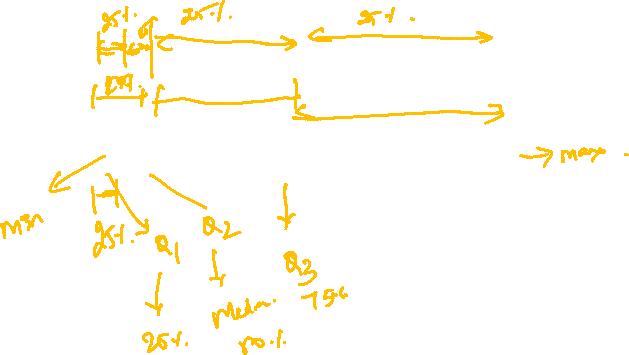 25% 25% 25%
→ max
min
25% Q1 Q2 Q3
25% Median 75%
50%